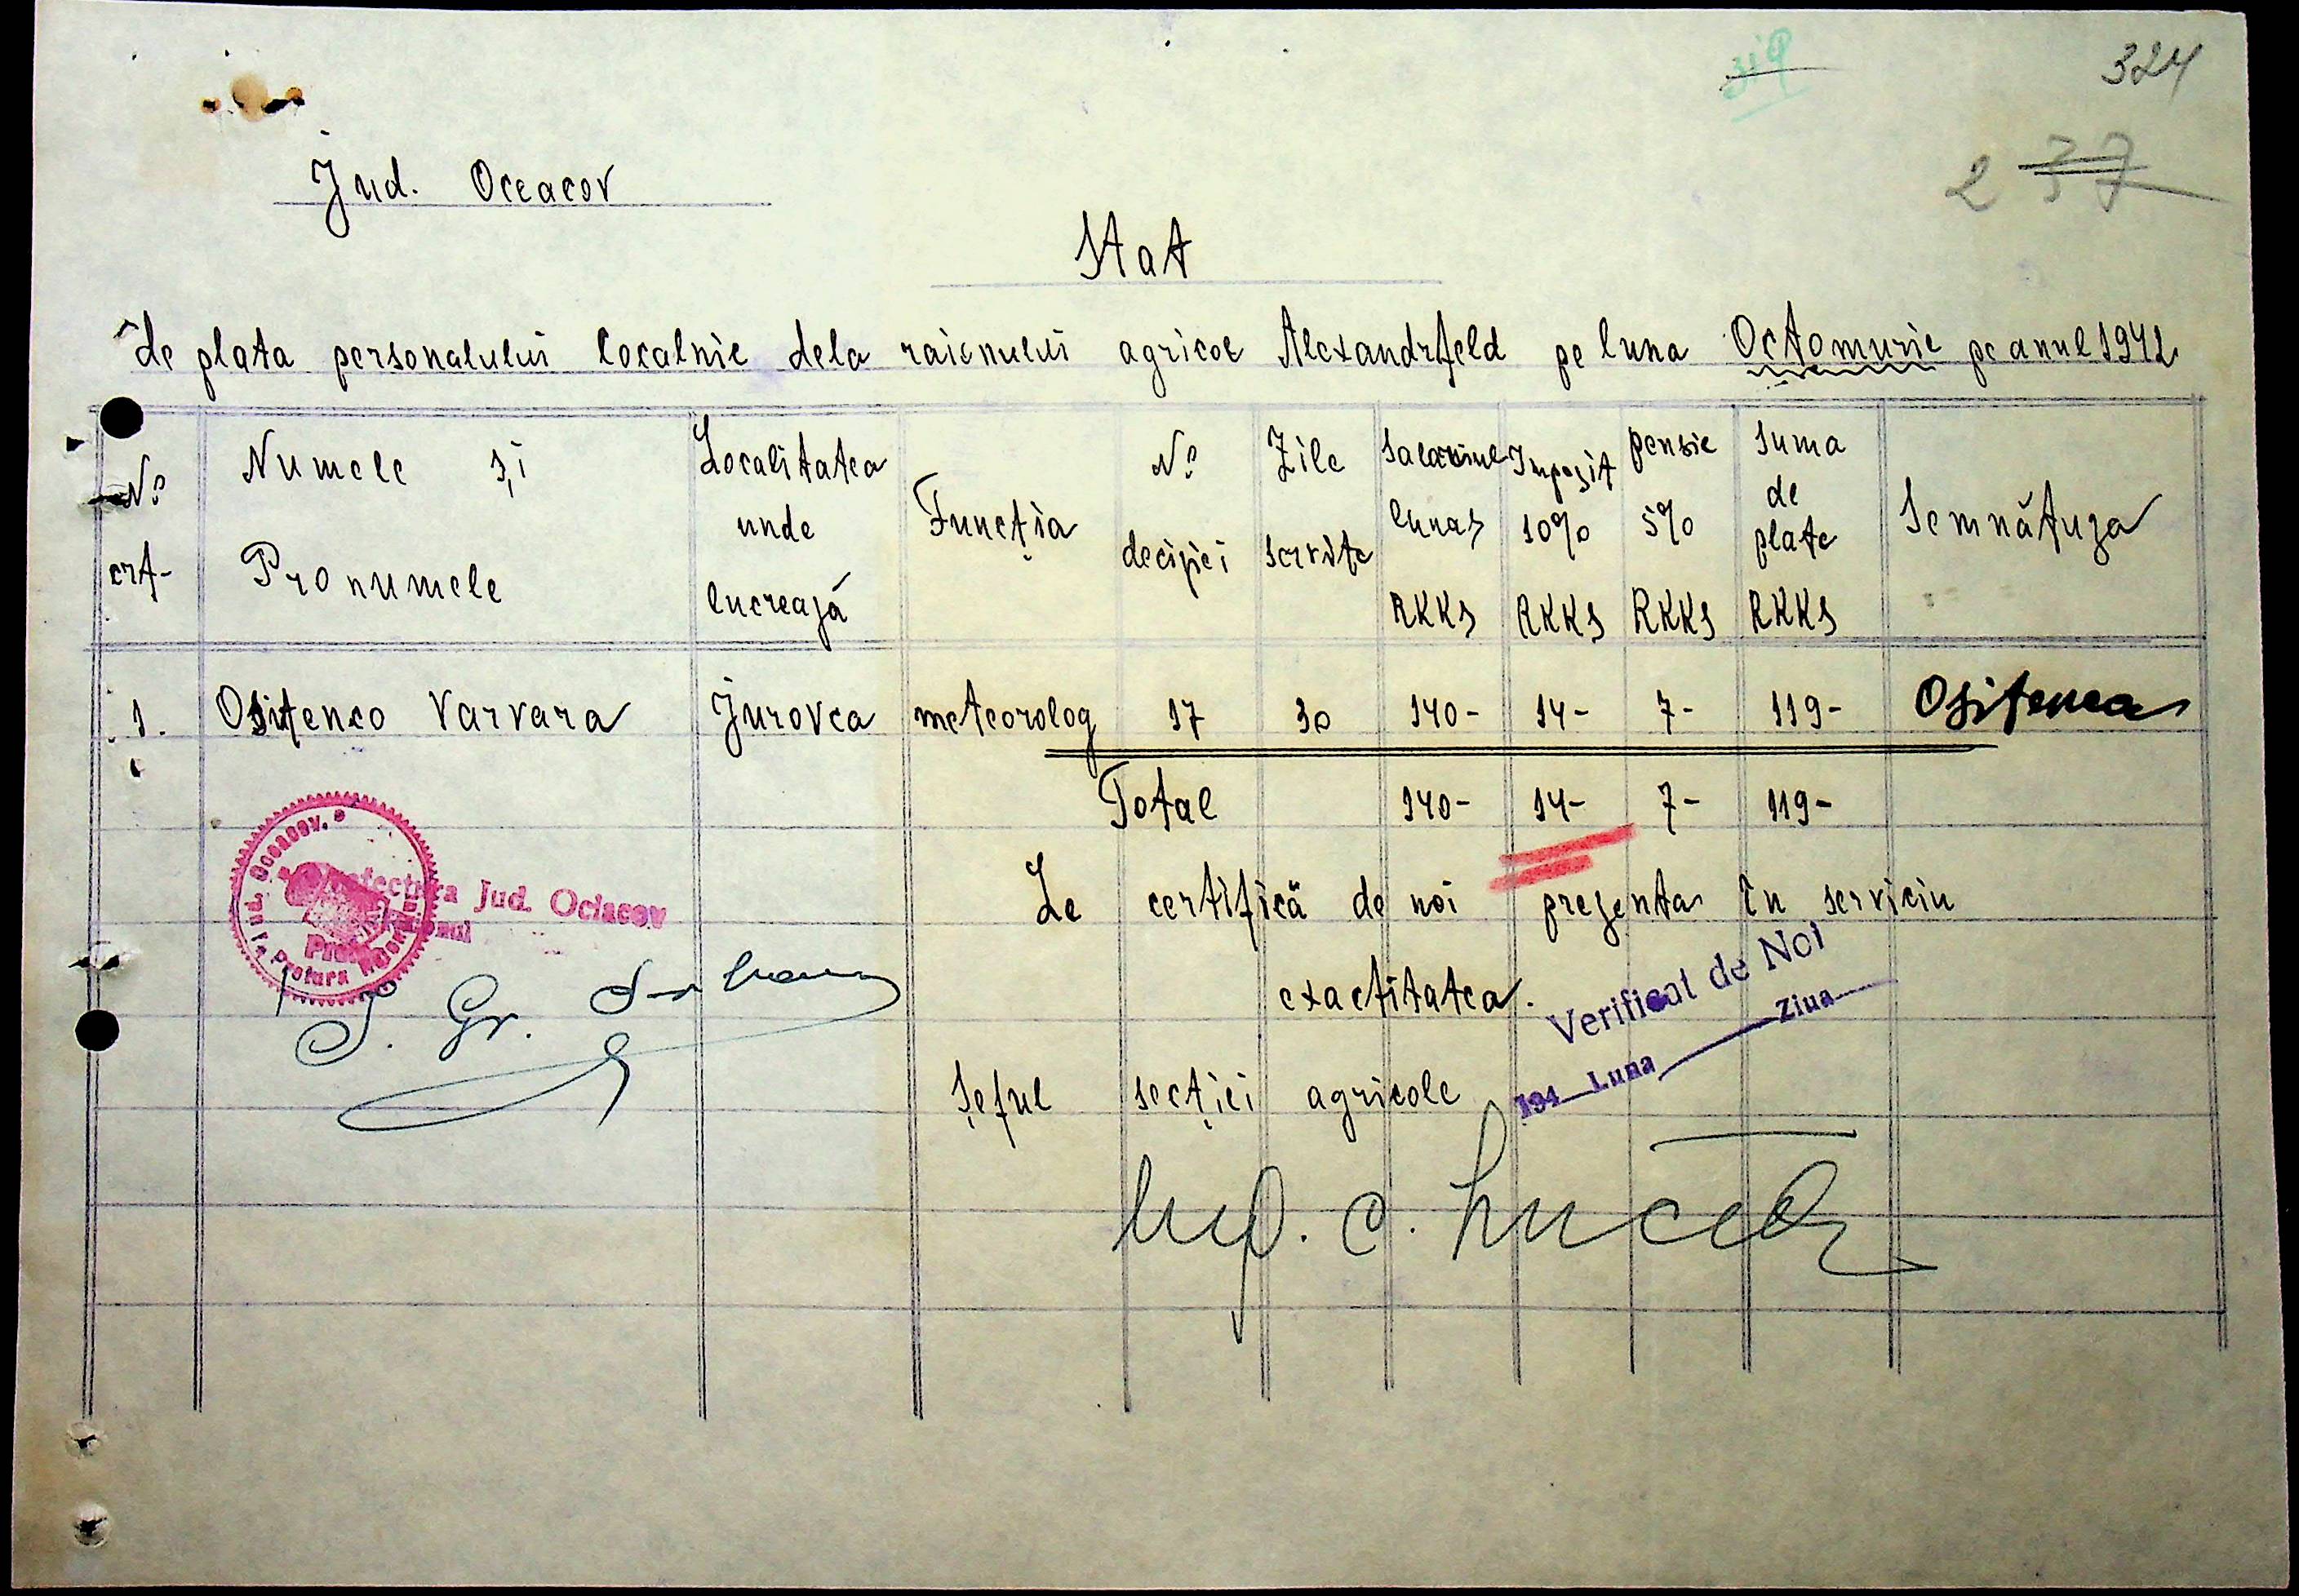 319
324
2 37
Jud. Oceacov
Stat
de plata personalului localnic dela raionului agricol Alexandrfeld pe luna Octomurie pe anul 1942
No crt-
Numele și Pronumele
Localitatea unde lucrează
Funcția
No deciziei
Zile servite
Salariul lunar RKKS
Impozit 10% RKKS
pensie 5% RKKS
Suma de plate RKKS
Semnătura
1. Ositenco Varvara Jurovca meteorolog 17 30 140- 14- 7- 119- Ositenco
Total 140- 14- 7- 119-
Se certifică de noi prezenta în serviciu
exactitatea.
Prefectura Jud. Ociacov
Verificat de Noi
194 Luna Ziua
Șeful secției agricole